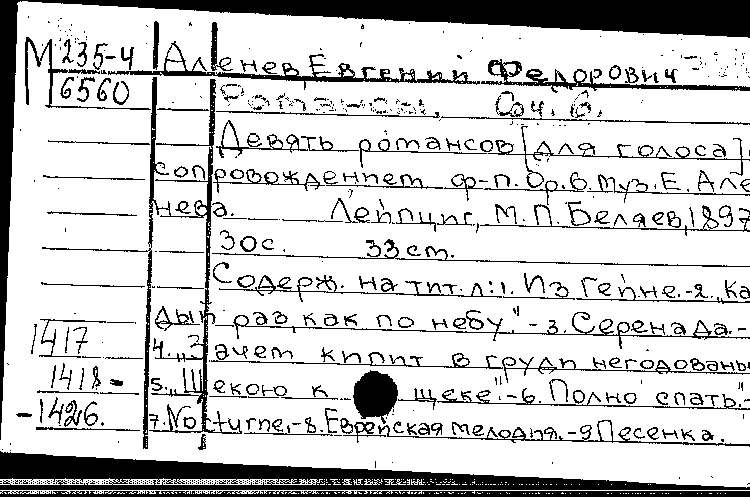 М 235-4 Аленев Евгений Федорович
6560 Романсы, Соч. 6.
Девять романсов [для голоса]
сопровождением ф-п. Op. 6. Муз. Е. Але
нева. Лейпциг, М. П. Беляев, 1897
30с. 33 cm.
Содерж. на тит. л: 1. Из Гейне. - 2. „Ка
дый раз, как по небу." - 3. Серенада. -
1417 4. „Зачем кипит в груди негодовань
1418 - 5. „Щекою к щеке". - 6. Полно спать." -
- 1426. 7. Nocturne. - 8. Еврейская мелодия. - 9 Песенка.